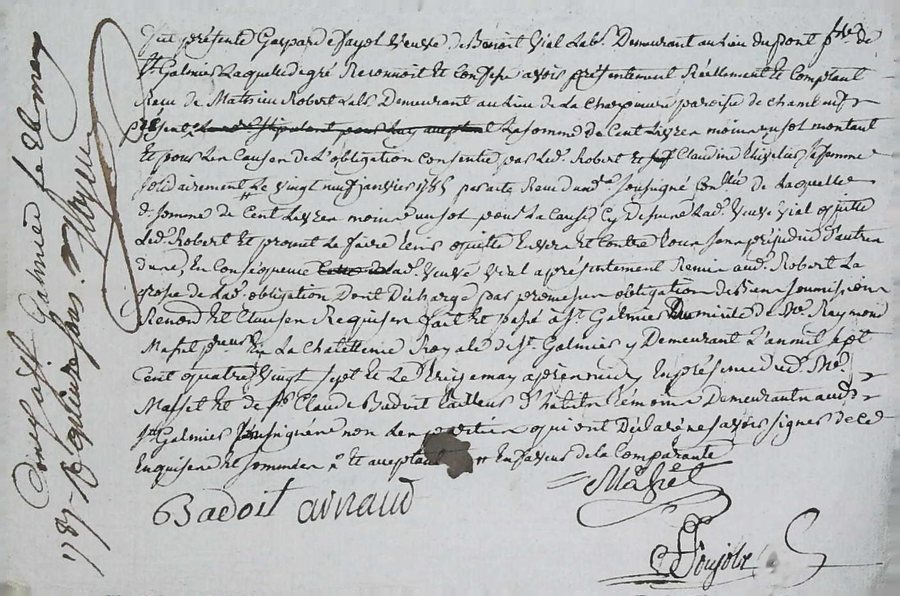 fut présente Gasparde fayol veuve de Benoit Vial Lab.r Demeurant au Lieu du pont p.sse de
St Galmier Laquelle de gré Reconnoit et Confesse avoir présentement Réellement et Comptant
Reçu de Mathieu Robert Lab.r Demeurant au Lieu de La paroisse de chambeuf
présent Le nd. Estipulant pour Luy acceptant La somme de Cent Livres moins un sol montant
Et pour Les Causes de L'obligation Consentie par Led. Robert Et Claudine sa femme
solidairement Le vingt neuf janvier 1785 par acte Reçu dud. ne soussigné Con.llé de Laquelle
d. somme de Cent Livres moins un sol pour La Cause Cy Dessus Lad. Veuve Vial quitte
Led. Robert Et promet Le faire tenir quitte Envers Et Contre tous sans préjudice d'autre
du, En Conséquence Lad. Veuve Vial a présentement Remis aud. Robert La
grosse de Lad. obligation Dont Décharge par promesses obligation de Biens soumissions
Renon.d Et Clauses Requises fait Et passé à St. Galmier Domicile de Me. Raymond
Massel En La Chatellenie Royale de St Galmier y Demeurant L'an mil sept
Cent quatre Vingt Sept Et Le treize may après midy En présence dud. Me.
Massel Et de Sr Claude Badoit tailleur d'habits témoins Demeurant aud.
St Galmier soussignés non Les parties qui ont Déclaré ne savoir signer de ce
Enquises Et sommées Et acceptant En faveur de la Comparante
Badoit arnaud
Massel
Ponjolx
Controllé à St Galmier Le 21 may
1787 R quinze sous.